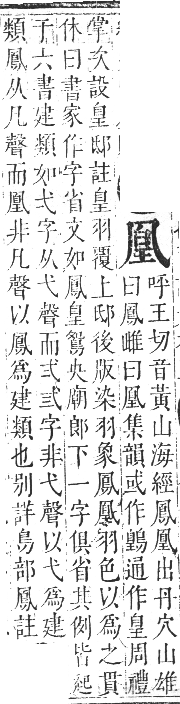 凰
呼王切音黃山海經鳳凰出丹穴山雄
曰鳳雌曰凰集韻或作䳨通作皇周禮
掌次設皇邸註皇羽覆上邸後版染羽象鳳凰羽色以爲之貫
休曰書家作字省文如鳳皇鴛央廟郎下一字俱省其例皆起
于六書建類如弌字从弋聲而弍弎字非弋聲以弋爲建
類鳳从凡聲而凰非凡聲以鳳爲建類也別詳鳥部鳳註